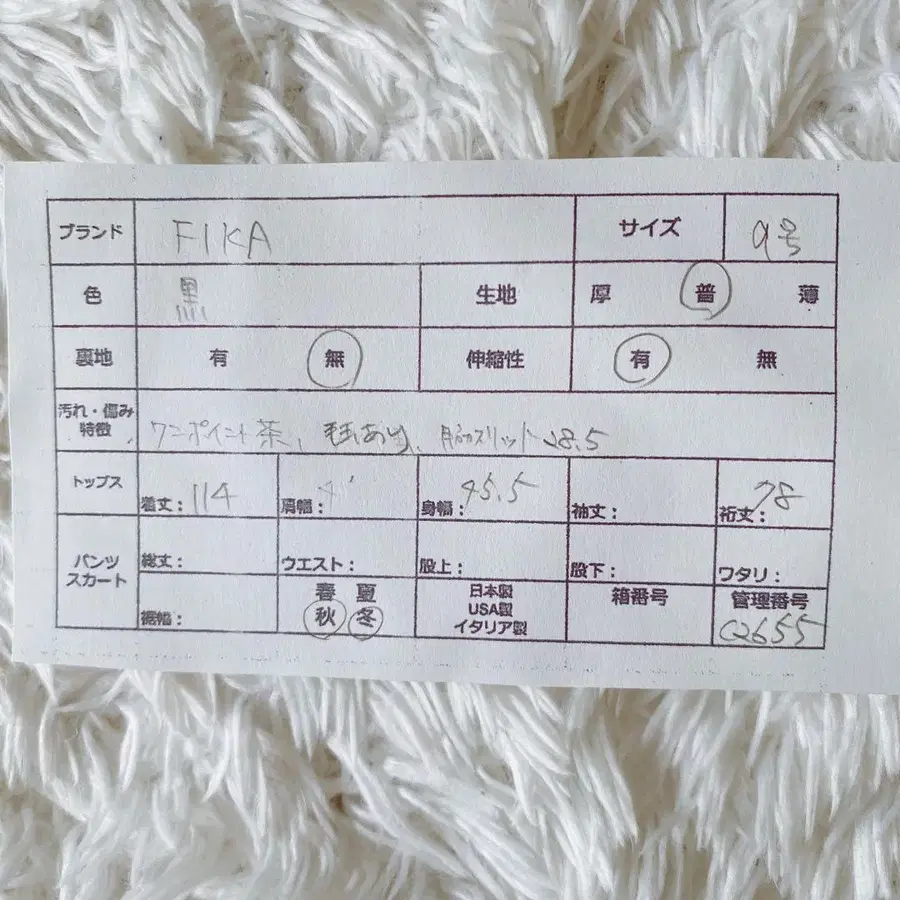 ブランド FIKA サイズ 9号
色 黒 生地 厚 普 薄
裏地 有 無 伸縮性 有 無
汚れ・傷み
特徴 ワンポイント茶、毛玉あり、脇スリット28.5
トップス 着丈:114 肩幅: 身幅:45.5 袖丈: 裄丈:78
パンツ
スカート 総丈: ウエスト: 股上: 股下: ワタリ:
裾幅: 春 夏
秋 冬
日本製
USA製
イタリア製
箱番号 管理番号
C2655